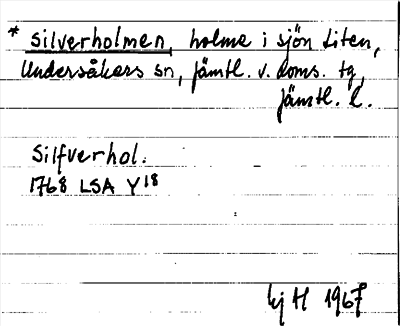 * Silverholmen, holme i sjön Liten,
Undersåkers sn, Jämtl. v. doms. tg,
Jämtl. l.
Silfverhol.
1768 LSA Y18
hj H 1967